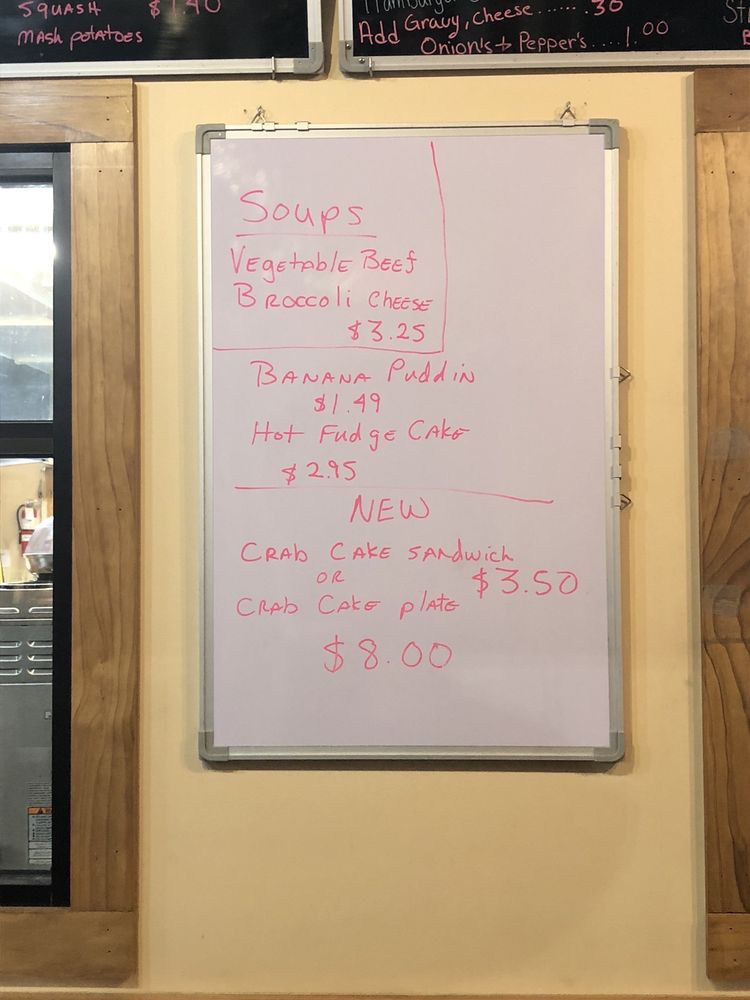 SQUASH $1.40
MASH POTATOES
Hamburger
Add Gravy, cheese ....... .30
Onion's + Pepper's .... 1.00
Soups
Vegetable Beef
Broccoli Cheese
$3.25
Banana Puddin
$1.49
Hot Fudge Cake
$2.95
NEW
Crab Cake Sandwich
OR $3.50
Crab Cake plate
$8.00